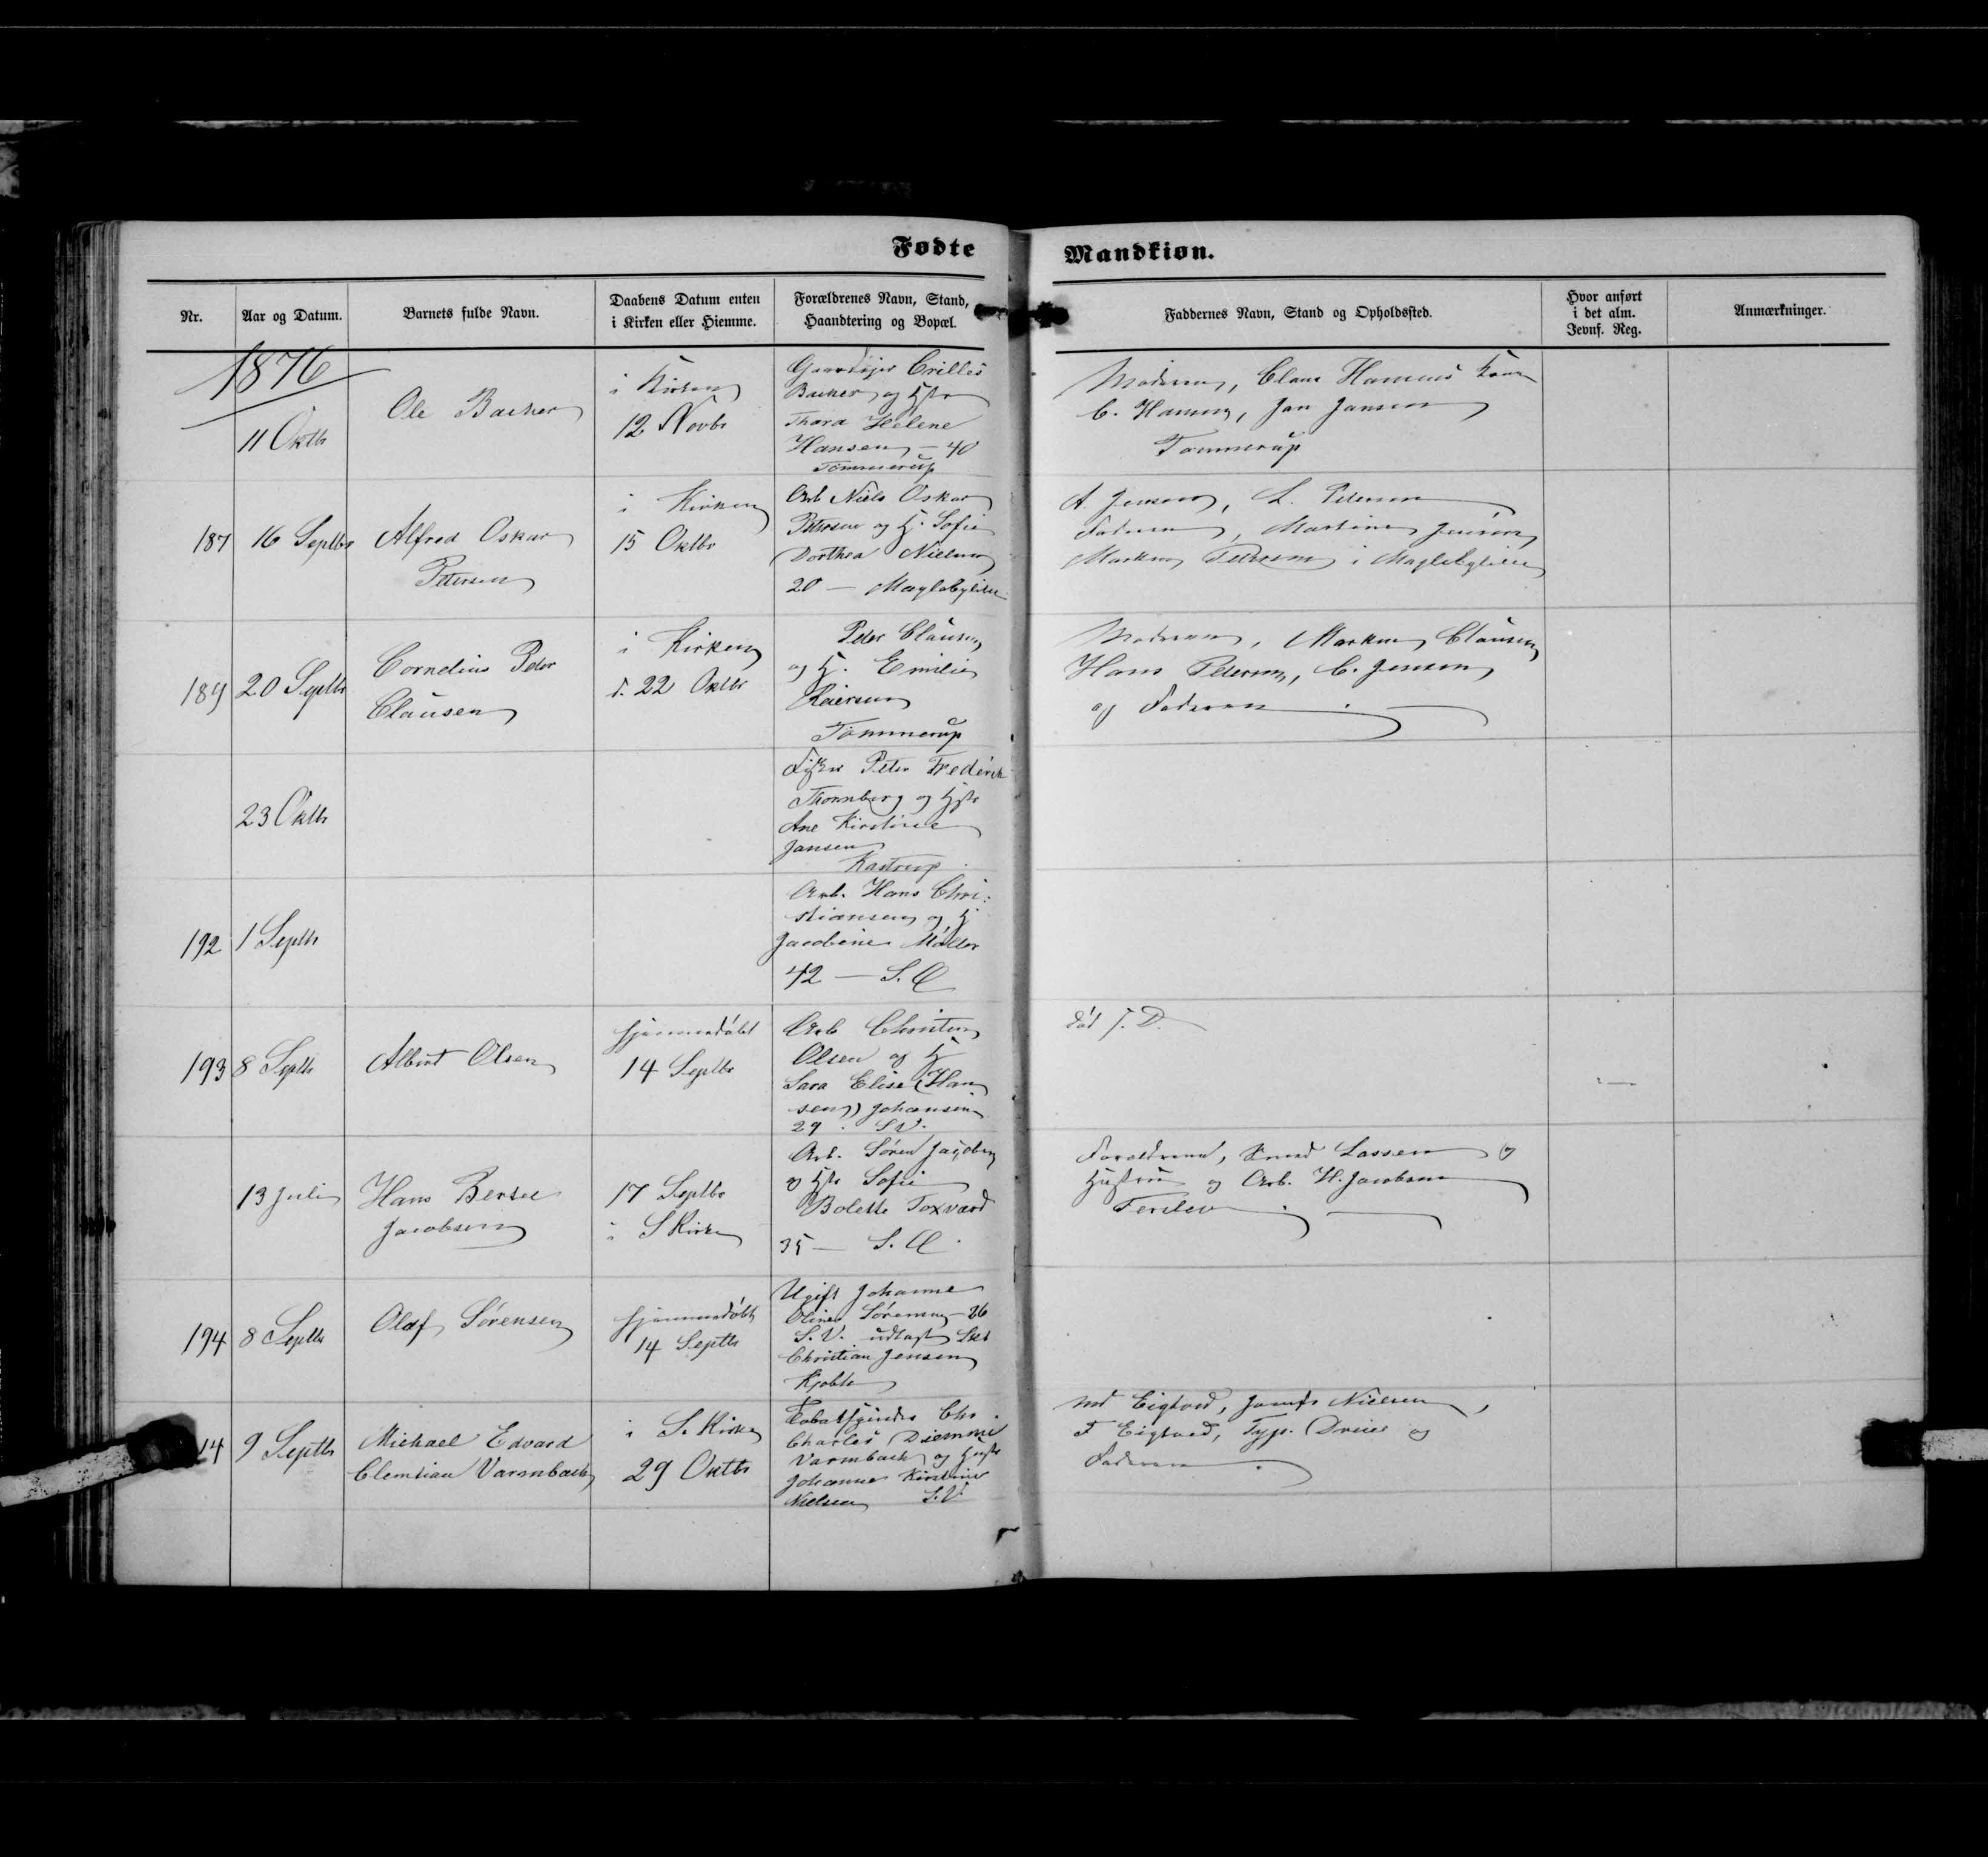 Fødte
Mandkiøn.
Nr.
Aar og Datum.
Barnets fulde Navn.
Daabens Datum enten
i Kirken eller Hiemme.
Forældrenes Navn, Stand,
Haandtering og Bopæl.
Faddernes Navn, Stand og Opholdssted.
Hvor anført
i det alm.
Jevnf. Reg.
Anmærkninger.
1876
11 Oktb
Ole Backer
i Kirken
12 Novbr
Gaardejer Crilles
Backer og Hstr
Thora Helene
Hansen - 40
Tømmerup
Moderen, Claus Hansens Kone
C. Hansen, Jan Jansen
Tømmerup
187
16 Septbr
Alfred Oskar
Petersen
i Kirken
15 Oktbr
Arb Niels Oskar
Petersen og H. Sofie
Dorthea Nielsen
20 - Maglebylille
A. Jensen, L. Petersen
Faderen, Martine Jensen
Markus Petersen i Maglebylille
189
20 Septbr
Cornelius Peter
Clausen
i Kirken
d. 22 Oktbr
Peter Clausen
og H. Emilie
Reiersen
Tømmerup
Moderen, Markus Clausen
Hans Petersen, C. Jensen
og Faderen
23 Oktbr
Fisker Peter Frederik
Thornberg og Hstr
Ane Kirstine
Jansen
Kastrup
192
1 Septbr
Arb. Hans Chri-
stiansen og H
Jacobine Møller
42 - S. O
193
8 Septbr
Albert Olsen
hjemmedøbt
14 Septbr
Arb Christen
Olsen og H
Sara Elise (Han
sen) Johansen
29. S V.
død f. D.
13 Juli
Hans Berter
Jacobsen
17 Septbr
i S Kirke
Arb. Søren Jacobsen
og Hstr Sofie
Bolette Toxværd
35 - S. O.
Forældrene, Lassen og
Hustru og Arb. H. Jacobsen
Ferslev
194
8 Septbr
Olaf Sørensen
hjemmedøbt
14 Septbr
Ugift Johanne
Oline Sørensen - 26
S. V. udlagt
Christian Jensen
Kjøbh
14
9 Septbr
Michael Edvard
Clemtian Varmbach
i S. Kirke
29 Oktbr
Tobaksspinder Chr.
Charles Diemmi
Varmbach og Hustr
Johanne Kirstine
Nielsen S. V.
Md Eigtved, Jomfr Nielsen,
F Eigtved, Typ. Dreier og
Faderen